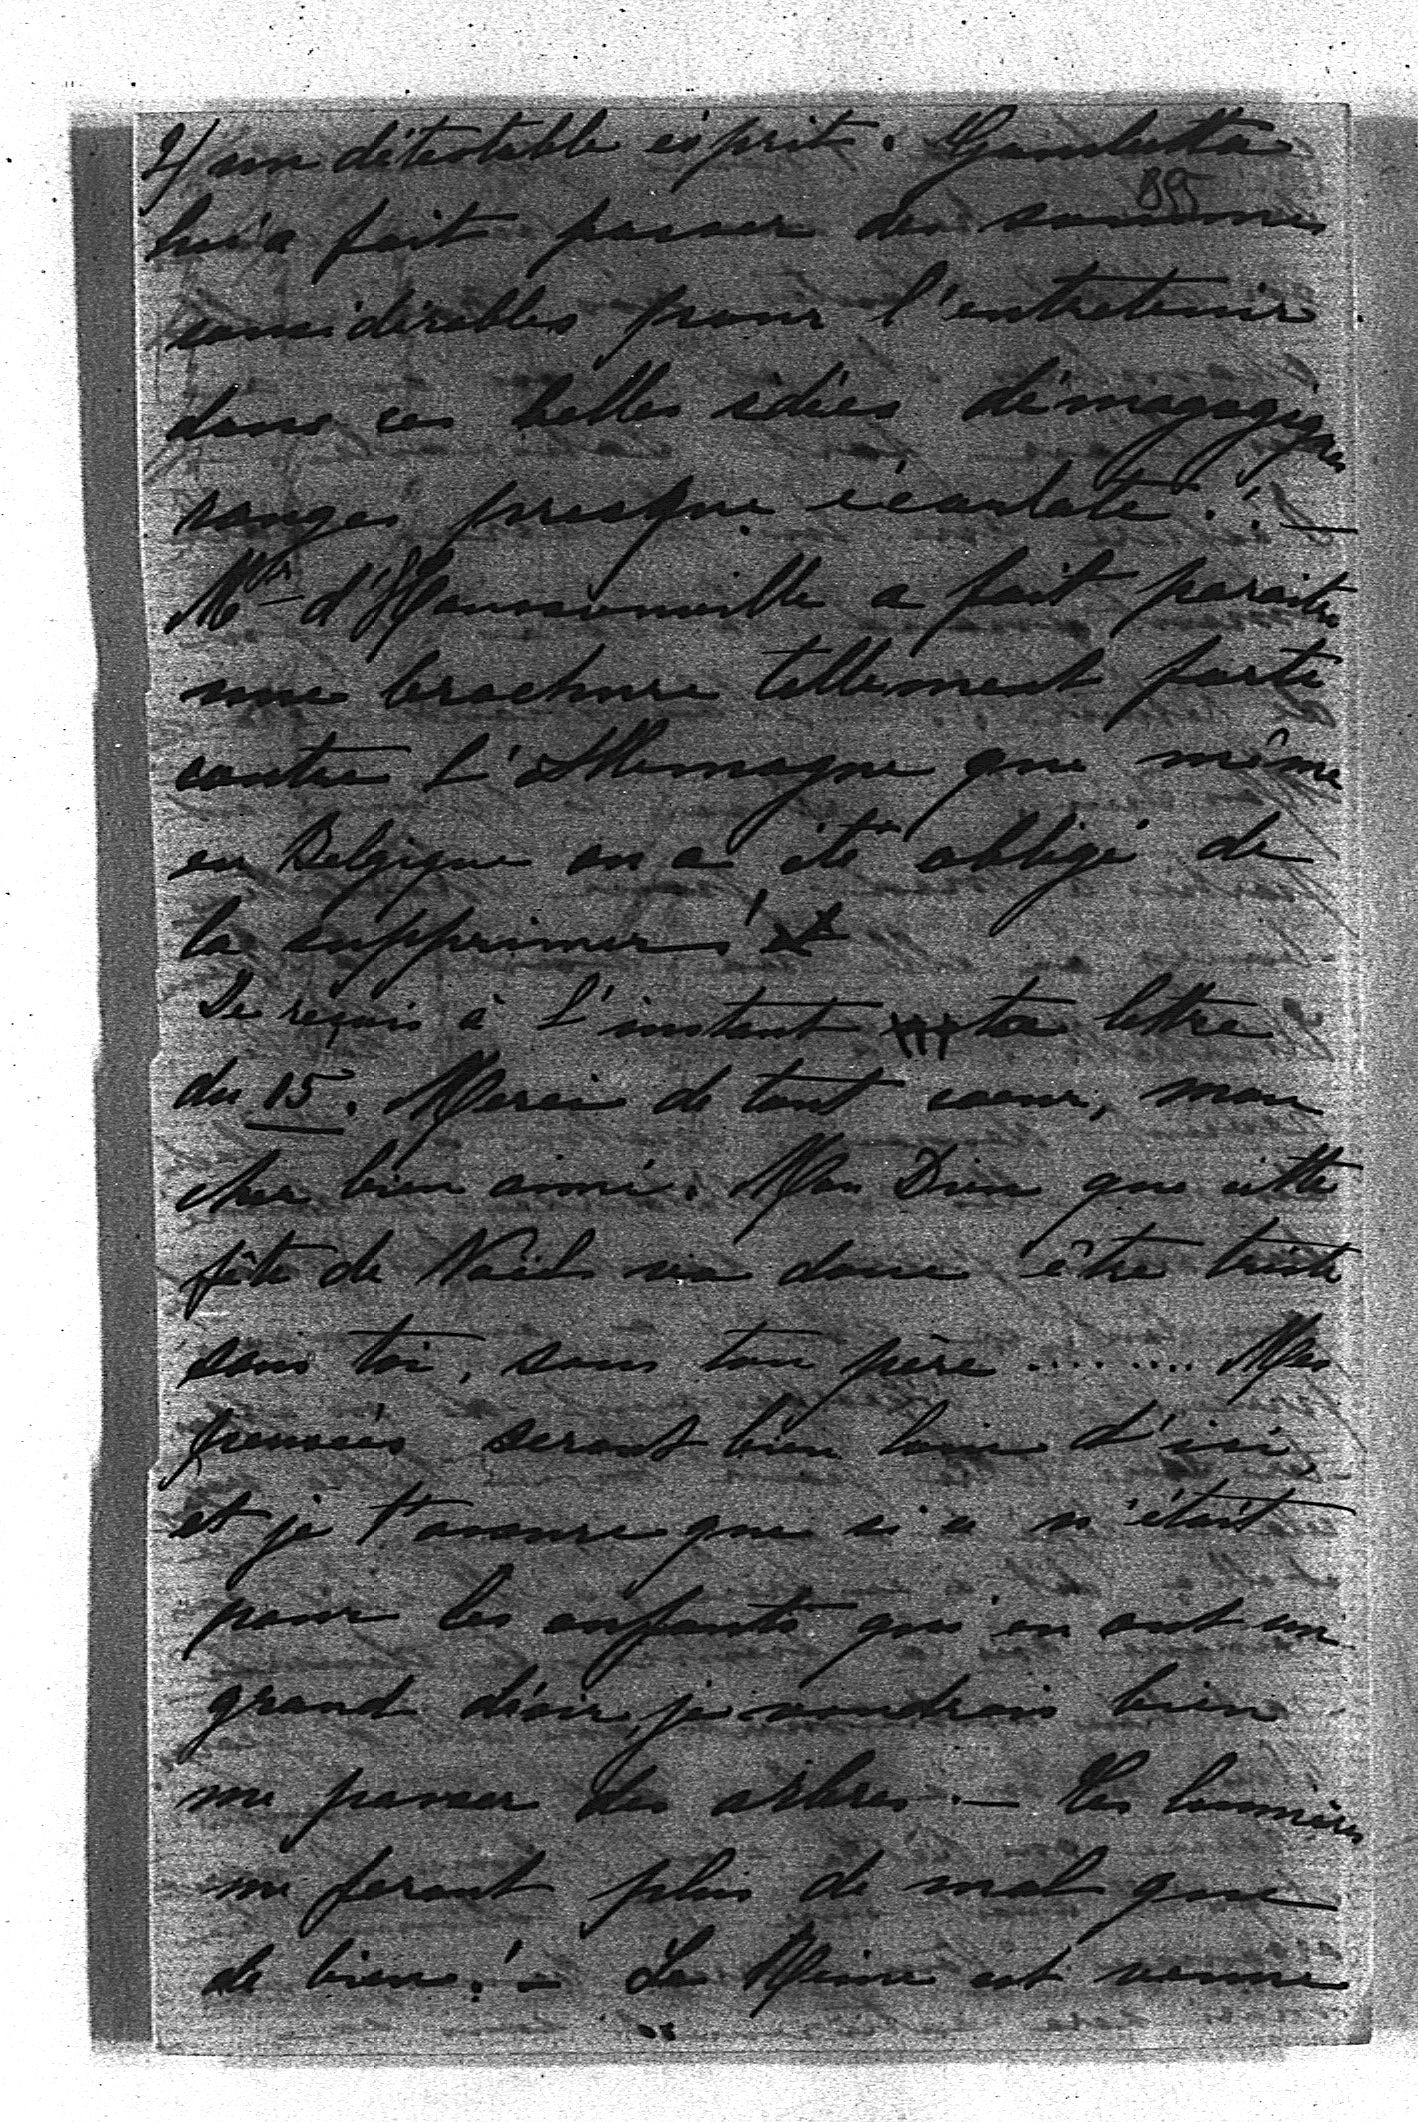 2/ un détestable esprit. Gambetta
895
lui a fait passer des sommes
considérables pour l'entretenir
dans ces belles idées démagogiques
rouges presque écarlate! —
Mr d'Haussonville a fait paraître
une brochure tellement forte
contre l'Allemagne que même
en Belgique on a été obligé de
la supprimer!
Je reçois à l'instant ta lettre
du 15. Merci de tout coeur, mon
cher bien aimé. Mon Dieu que cette
fête de Noël va donc être triste
sans toi, sans ton père ........ Mes
pensées seront bien loin d'ici
et je t'avoue que si ce n'était
pour les enfants qui en ont un
grand désir, je voudrais bien
me passer des arbres. — Les lumières
me feront plus de mal que
de bien! — La Reine est venue